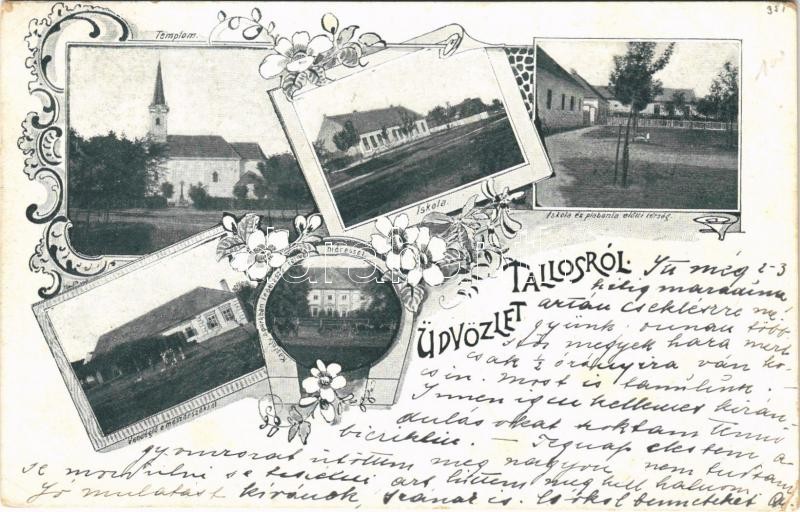 351
Templom.
Iskola.
Iskola és plébánia előtti térség.
Vendéglő a mészárszékkel
Kastély a parkban
ÜDVÖZLET
TALLOSRÓL.
Itt még 2-3
hétig maradunk
azután Cseklészre me-
gyünk. onnan több
megyek haza mert
csak ½ órányira van ko-
csin. most is tanulunk. –
Innen igen kellemes kirán-
dulásokat szoktam tenni
biciklin. – Tegnap elestem a
gyomromat ütöttem meg nagyon nem tudtam
se mozdulni se beszélni azt hittem meg kell halnom.
Jó mulatást kívánok, is. Csókol benneteket